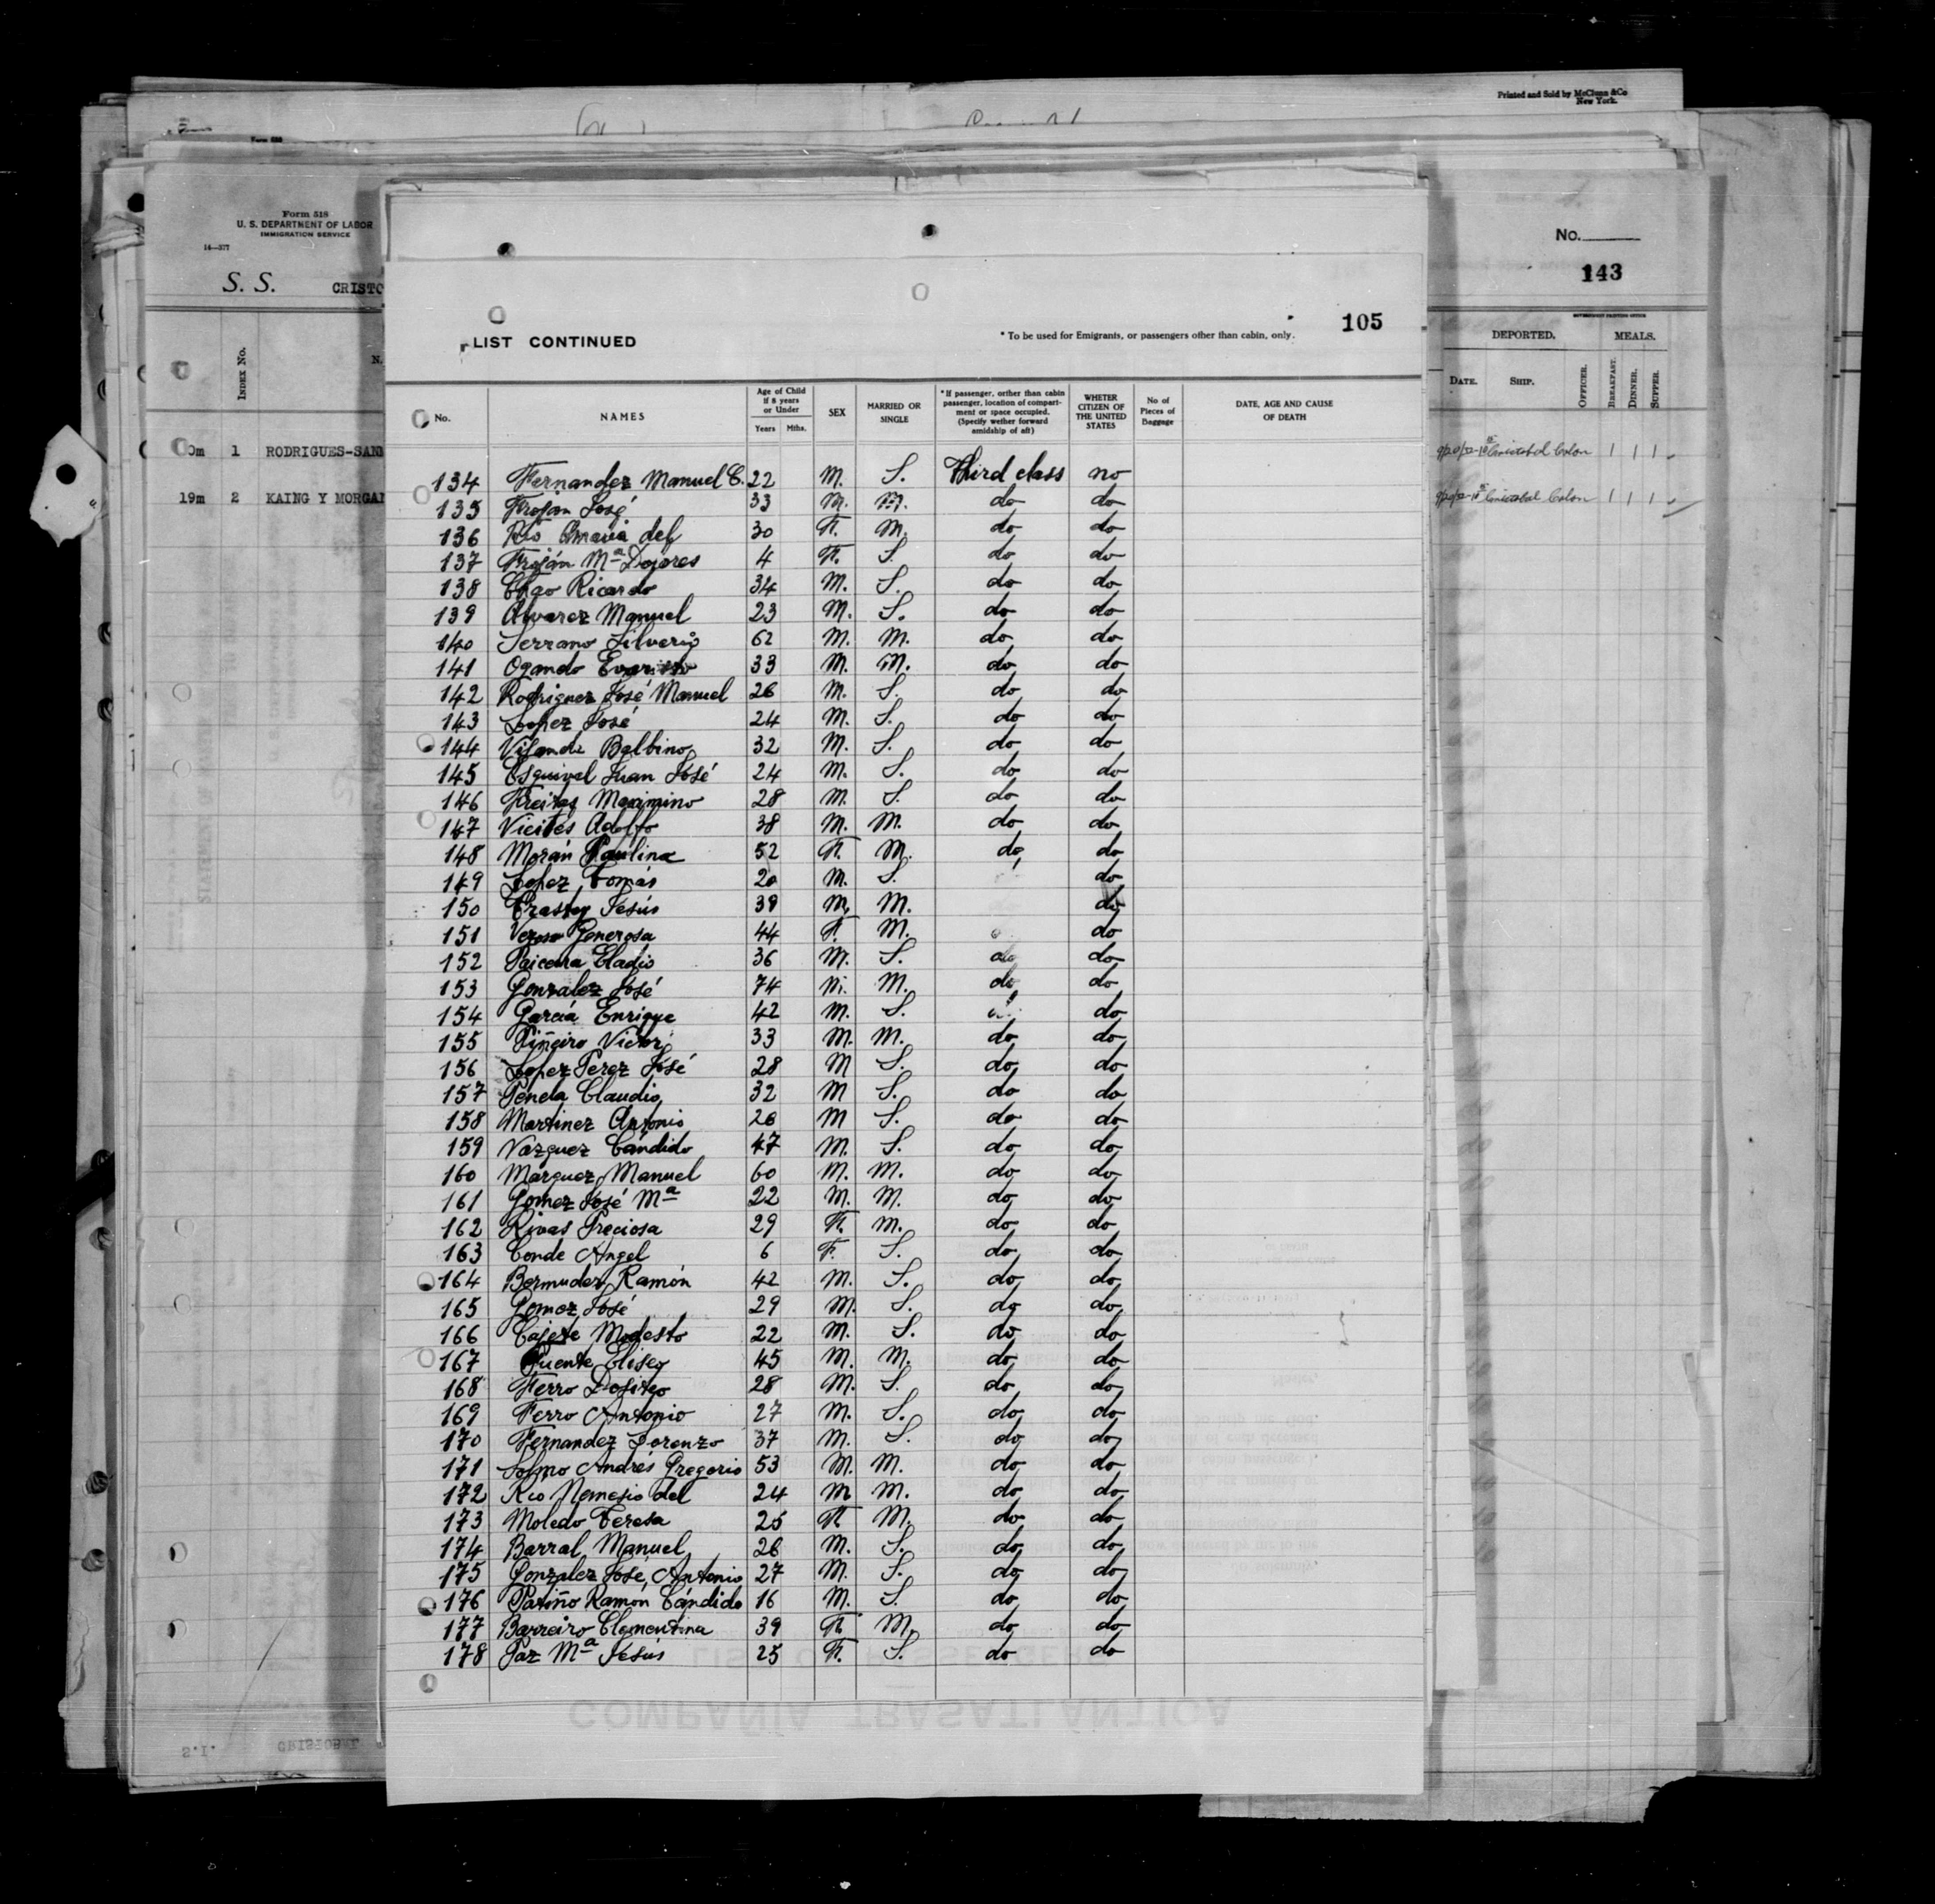 Printed and Sold by McClunn & Co
New York.
Form 518
U. S. DEPARTMENT OF LABOR
IMMIGRATION SERVICE
14—377
S. S. CRISTO
INDEX No.
N.
0m 1 RODRIGUES-SAN
19m 2 KAING Y MORGAN
No.
143
DEPORTED. MEALS.
DATE. SHIP. OFFICER. BREAKFAST. DINNER. SUPPER.
Cristobal Colon 1 1 1
Cristobal Colon 1 1 1
105
LIST CONTINUED
* To be used for Emigrants, or passengers other than cabin, only.
No. NAMES Age of Child if 8 years or Under Years Mths. SEX MARRIED OR SINGLE * If passenger, orther than cabin passenger, location of compartment or space occupied, (Specify wether forward amidship of aft) WHETER CITIZEN OF THE UNITED STATES No of Pieces of Baggage DATE, AGE AND CAUSE OF DEATH
134 Fernandez Manuel C. 22 M. S. Third class no
135 Froján José 33 M. M. do do
136 Río Maria del 30 F. M. do do
137 Froján Mª Dolores 4 F. S. do do
138 Chao Ricardo 34 M. S. do do
139 Alvarez Manuel 23 M. S. do do
140 Serrano Silverio 62 M. M. do do
141 Ogando Evaristo 33 M. M. do do
142 Rodriguez José Manuel 26 M. S. do do
143 Lopez José 24 M. S. do do
144 Balbino 32 M. S. do do
145 Esquivel Juan José 24 M. S. do do
146 Freitas Maximino 28 M. S. do do
147 Vieites Adolfo 38 M. M. do do
148 Morán Paulina 52 F. M. do do
149 Lopez Tomás 20 M. S. do
150 Jesús 39 M. M. do
151 Generosa 44 F. M. do
152 Eladio 36 M. S. do do
153 Gonzalez José 74 M. M. do do
154 García Enrique 42 M. S. do
155 Piñeiro Victor 33 M. M. do do
156 Lopez Perez José 28 M S. do do
157 Penela Claudio 32 M S. do do
158 Martinez Antonio 26 M S. do do
159 Vazquez Cándido 47 M. S. do do
160 Marquez Manuel 60 M. M. do do
161 Gomez José Mª 22 M. M. do do
162 Rivas Preciosa 29 F. M. do do
163 Conde Angel 6 F. S. do do
164 Bermudez Ramón 42 M. S. do do
165 Gomez José 29 M. S. do do
166 Cajete Modesto 22 M. S. do do
167 Puente Eliseo 45 M. M. do do
168 Ferro Dositeo 28 M. S. do do
169 Ferro Antonio 27 M. S. do do
170 Fernandez Lorenzo 37 M. S. do do
171 Solmo Andrés Gregorio 53 M. M. do do
172 Rio Nemesio del 24 M M. do do
173 Moledo Teresa 25 F. M. do do
174 Barral Manuel 26 M. S. do do
175 Gonzalez José Antonio 27 M. S. do do
176 Patiño Ramón Cándido 16 M. S. do do
177 Barreiro Clementina 39 F. M. do do
178 Paz Mª Jesús 25 F. S. do do
COMPAÑIA TRASATLANTICA
S.I. CRISTOBAL